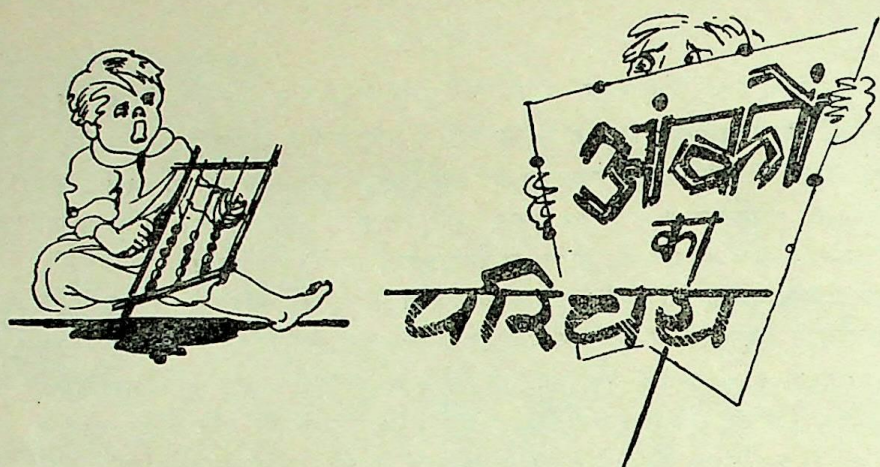 अंकों
का
परिचय